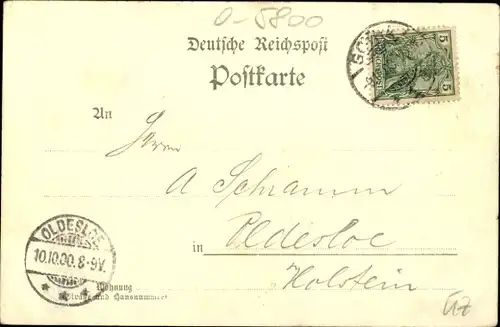 O-5800
Deutsche Reichspost
Postkarte
5 5
An
Herrn
A Schramm
in Oldesloe
Holstein
OLDESLOE
10.10.00. 8-9V.
Wohnung
(Straße und Hausnummer)